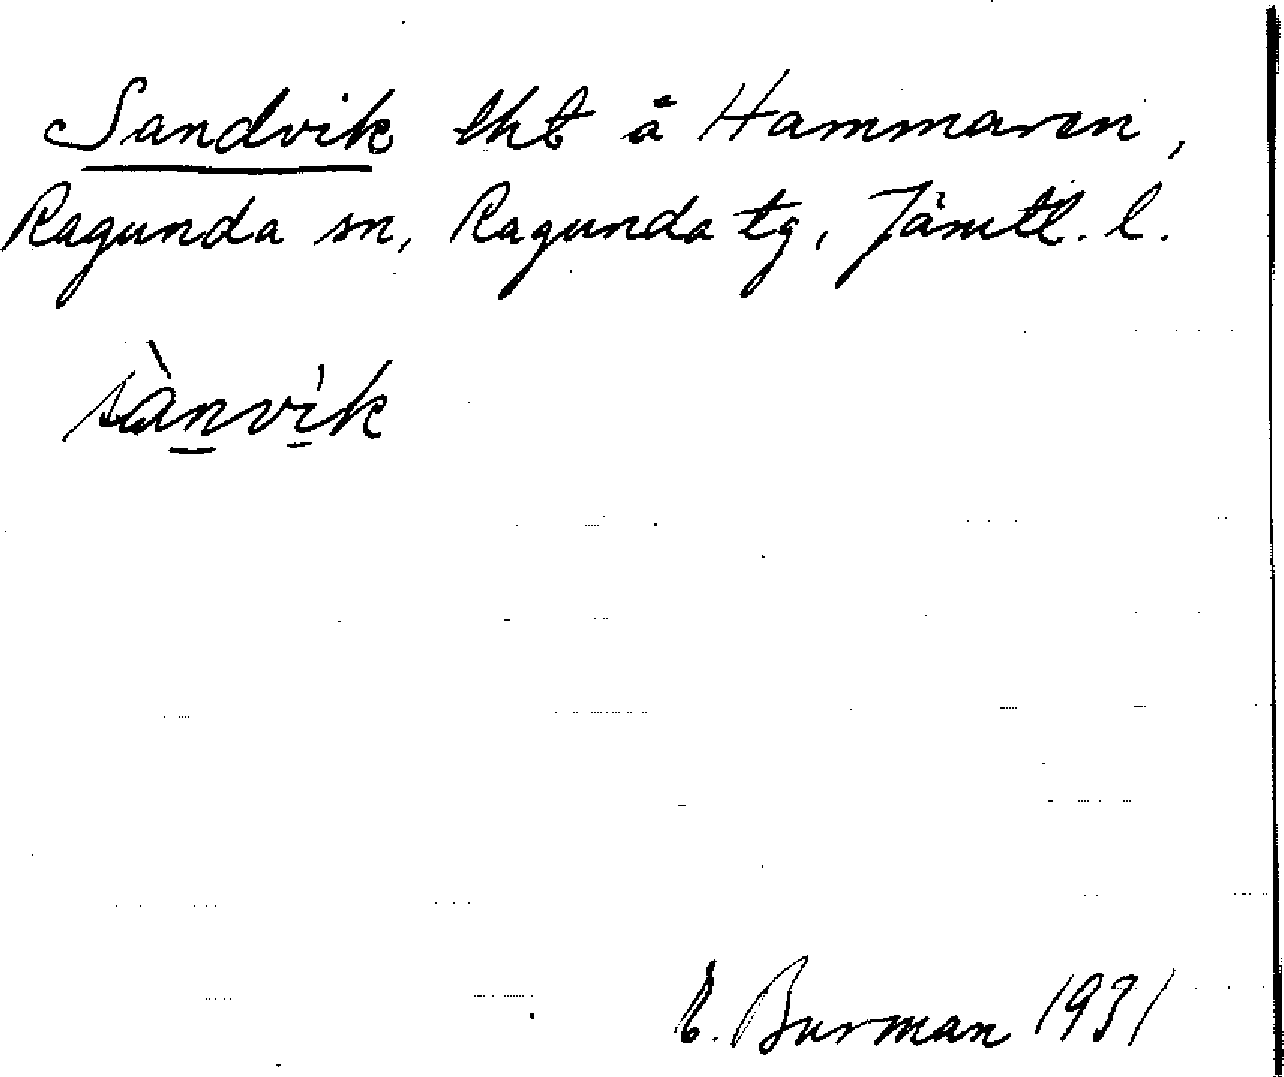 Sandvik lht å Hammaren,
Ragunda sn, Ragunda tg, Jämtl. l.
sànvi̍k
E. Burman 1931